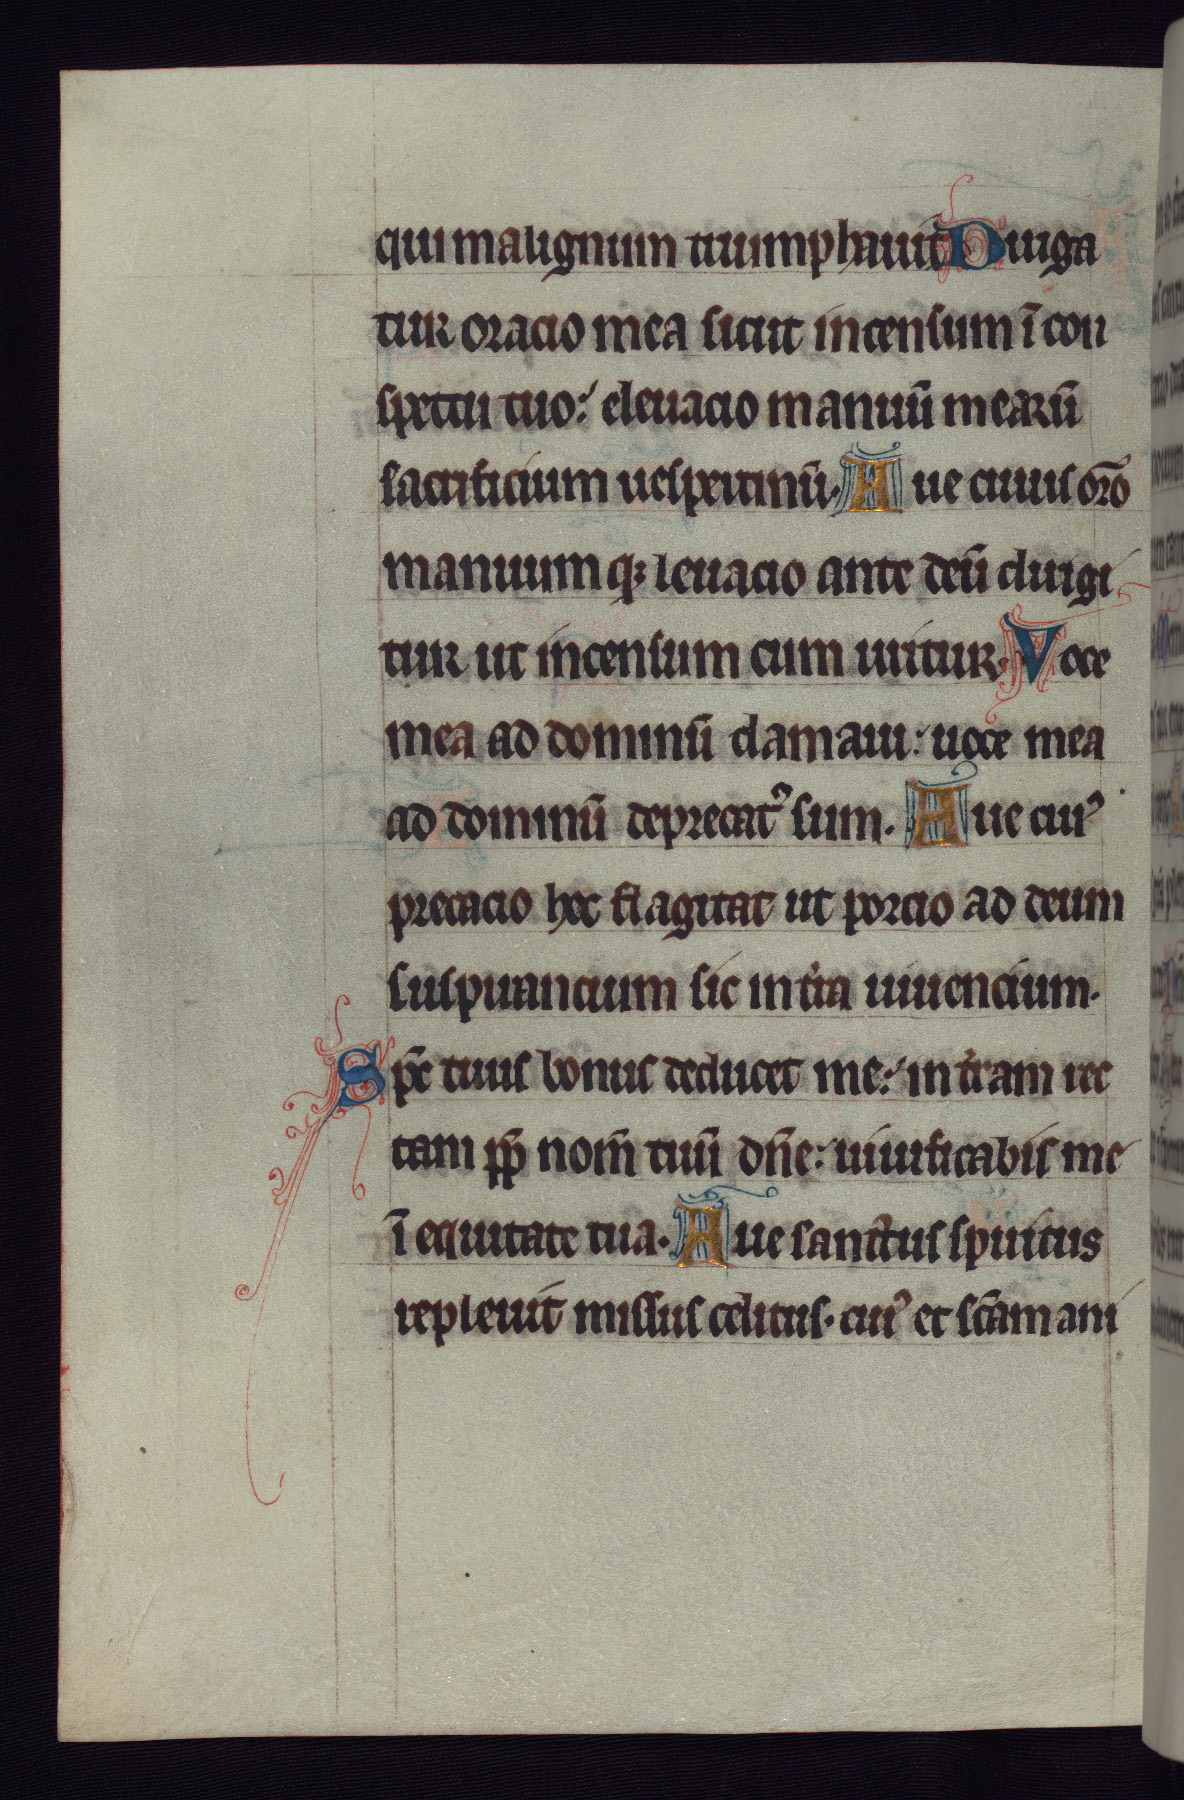 qui malignum triumphauit Diriga
tur oracio mea sicut incensum ī con
spectu tuo: eleuacio manuū mearū
sacrificium uespertinū. Aue cuius orō
manuum qȝ leuacio ante deū dirigi
tur ut incensum cum uritur. Voce
mea ad dominū clamaui: uoce mea
ad dominū deprecatꝰ sum. Aue cuiꝰ
precacio hec flagitat ut porcio ad deum
suspirancium sic in tr̄a uiuencium.
Spc̄ tuus bonus deducet me: in tr̄am rec
tam ꝓp̄ nom̄ tuū dn̄e: uiuificabis me
ī equitate tua. Aue sanctus spiritus
repleuit missus celitus. cuiꝰ et sc̄am ani